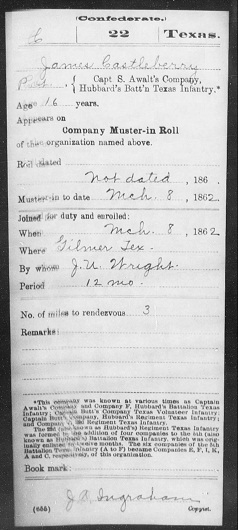 (Confederate.)
C 22 Texas.
James Castleberry
Pvt., Capt S. Awalt's Company,
Hubbard's Batt'n Texas Infantry.*
Age 16 years.
Appears on
Company Muster-in Roll
of the organization named above.
Roll dated
Not dated, 186 .
Muster-in to date Mch. 8, 1862.
Joined for duty and enrolled:
When Mch. 8, 1862
Where Gilmer Tex.
By whom J. U. Wright.
Period 12 mo.
No. of miles to rendezvous 3
Remarks:
*This company was known at various times as Captain
Awalt's Company and Company F, Hubbard's Battalion Texas
Infantry; Captain Batt's Company Texas Volunteer Infantry;
Captain Batt's Company, Hubbard's Regiment Texas Infantry;
and Company 22d Regiment Texas Infantry.
The 22d (also known as Hubbard's) Regiment Texas Infantry
was formed by the addition of four companies to the 5th (also
known as Hubbard's) Battalion Texas Infantry, which was orig-
inally enlisted for twelve months. The six companies of the 5th
Battalion Texas Infantry (A to F) became Companies E, F, I, K,
A and C, respectively, of this organization.
Book mark:
J. A. Ingraham
(655) Copyist.